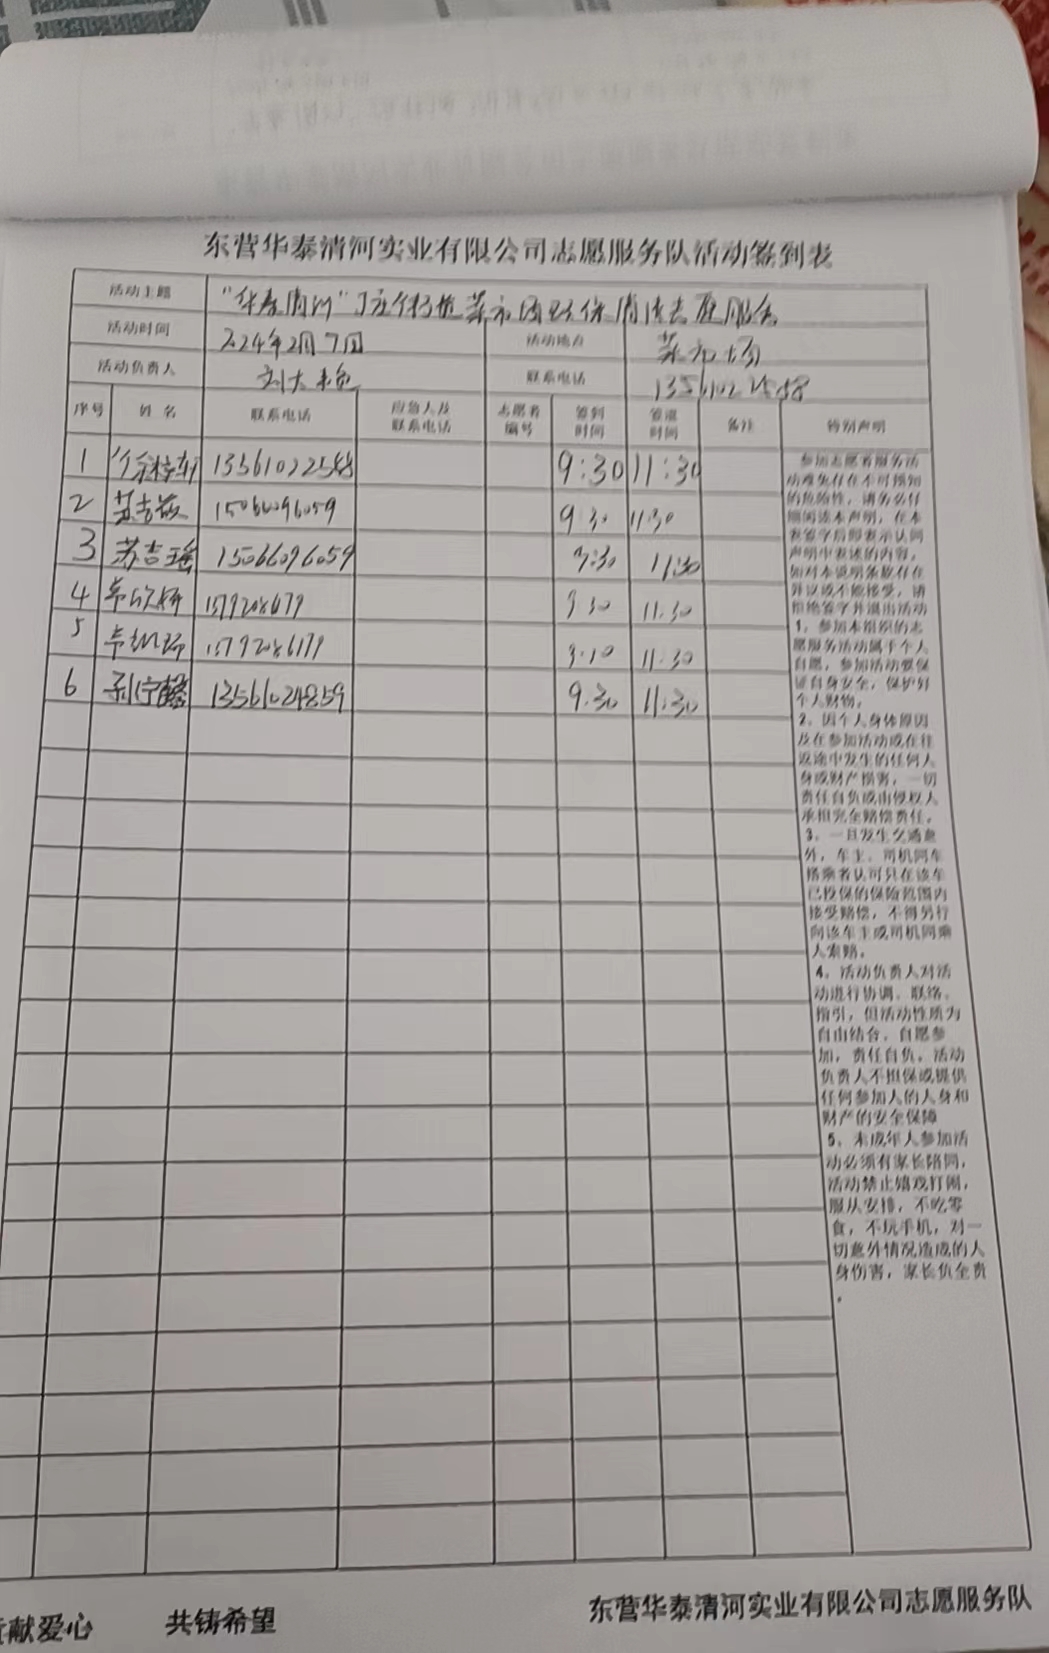 东营华泰清河实业有限公司志愿服务队活动签到表
活动主题 "华泰清河"
活动时间 2024年2月7日 活动地点 菜市场
活动负责人 联系电话 13561022588
序号 姓名 联系电话 应急人及联系电话 志愿者编号 签到时间 签退时间 备注 特别声明
1 徐梓轩 13561022588 9:30 11:30
2 15066096059 9:30 11:30
3 苏吉瑶 15066096059 9:30 11:30
4 9:30 11:30
5 11:30
6 13561024859 9:30 11:30
参加志愿者服务活
动难免存在不可预知
的危险性，请务必仔
细阅读本声明，在本
表签字后即表示认同
声明中表述的内容。
如对本说明条款存在
异议或不能接受，请
拒绝签字并退出活动
1、参加本组织的志
愿服务活动属于个人
自愿，参加活动要保
证自身安全，保护好
个人财物。
2、因个人身体原因
及在参加活动或在往
返途中发生的任何人
身或财产损害，一切
责任自负或由侵权人
承担完全赔偿责任。
3、一旦发生交通意
外，车主、司机同车
搭乘者认可只在该车
已投保的保险范围内
接受赔偿，不得另行
向该车主或司机同乘
人索赔。
4、活动负责人对活
动进行协调、联络、
指引，但活动性质为
自由结合、自愿参
加，责任自负。活动
负责人不担保或提供
任何参加人的人身和
财产的安全保障
5、未成年人参加活
动必须有家长陪同，
活动禁止嬉戏打闹，
服从安排，不吃零
食，不玩手机，对一
切意外情况造成的人
身伤害，家长负全责
。
献爱心 共铸希望 东营华泰清河实业有限公司志愿服务队